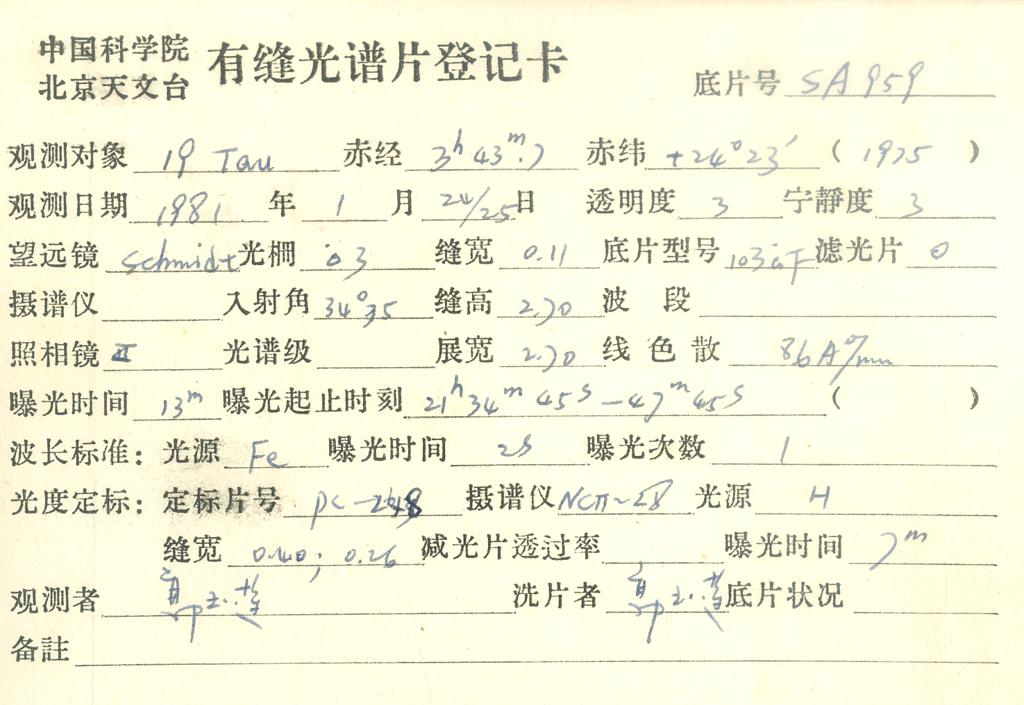 中国科学院
北京天文台
有缝光谱片登记卡
底片号 SA959
观测对象 19 Tau 赤经 3h 43m.7 赤纬 +24°23′ ( 1975 )
观测日期 1981 年 1 月 24/25 日 透明度 3 宁静度 3
望远镜 Schmidt 光栅 03 缝宽 0.11 底片型号 103aF 滤光片 0
摄谱仪 入射角 34°35 缝高 2.70 波段
照相镜 II 光谱级 展宽 2.70 线色散 86A°/mm
曝光时间 13m 曝光起止时刻 21h 34m 45s — 47m 45s ( )
波长标准: 光源 Fe 曝光时间 2s 曝光次数 1
光度定标: 定标片号 pc-248 摄谱仪 光源 H
缝宽 0.40; 0.26 减光片透过率 曝光时间 7m
观测者 洗片者 底片状况
备註